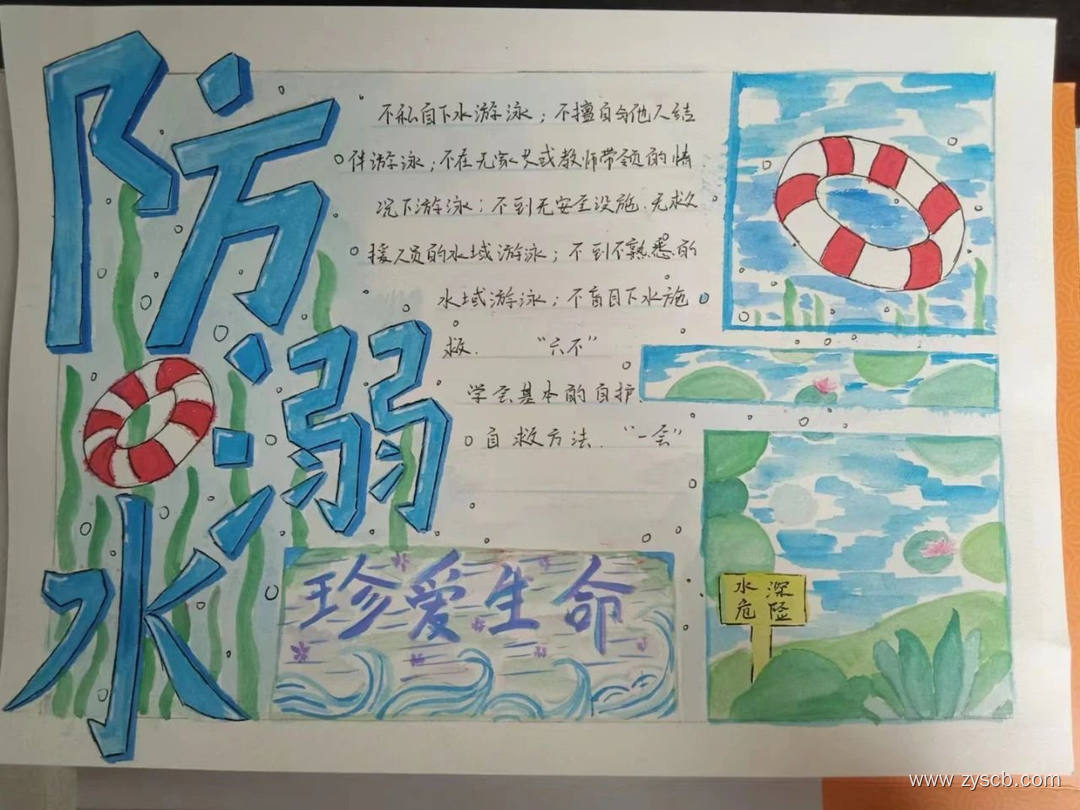 防溺水
不私自下水游泳；不擅自与他人结
伴游泳；不在无家长或教师带领的情
况下游泳；不到无安全设施、无救
援人员的水域游泳；不到不熟悉的
水域游泳；不盲目下水施
救. “六不”
学会基本的自护、
自救方法. “一会”
珍爱生命
水深
危险
www.zyscb.com